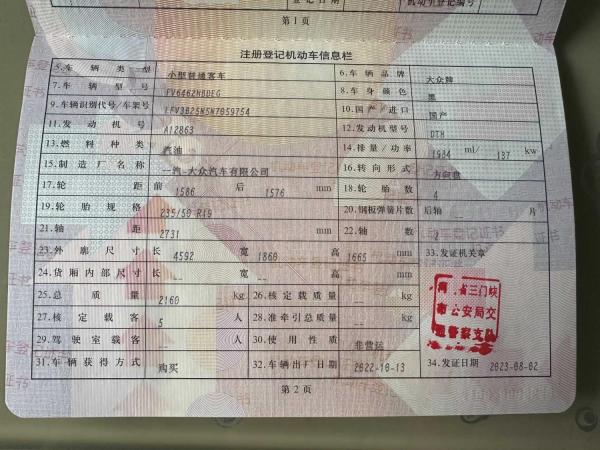 登记日期
机动车登记编号
第1页
注册登记机动车信息栏
5.车辆类型 小型普通客车 6.车辆品牌 大众牌
7.车辆型号 FV6462HBDEG 8.车身颜色 黑
9.车辆识别代号/车架号 LFV3B25N5N7059754 10.国产/进口 国产
11.发动机号 A12863 12.发动机型号 DTH
13.燃料种类 汽油 14.排量/功率 1984 ml/ 137 kw
15.制造厂名称 一汽-大众汽车有限公司 16.转向形式 方向盘
17.轮距 前 1586 后 1576 mm 18.轮胎数 4
19.轮胎规格 235/50 R19 20.钢板弹簧片数 后轴 -- 片
21.轴距 2731 mm 22.轴数 2
23.外廓尺寸 长 4592 宽 1860 高 1665 mm 33.发证机关章
24.货厢内部尺寸 长 -- 宽 -- 高 -- mm
25.总质量 2160 kg 26.核定载质量 -- kg
27.核定载客 5 人 28.准牵引总质量 -- kg
29.驾驶室载客 -- 人 30.使用性质 非营运
31.车辆获得方式 购买 32.车辆出厂日期 2022-10-13 34.发证日期 2023-08-02
省三门峡
市公安局交
通警察支队
第2页